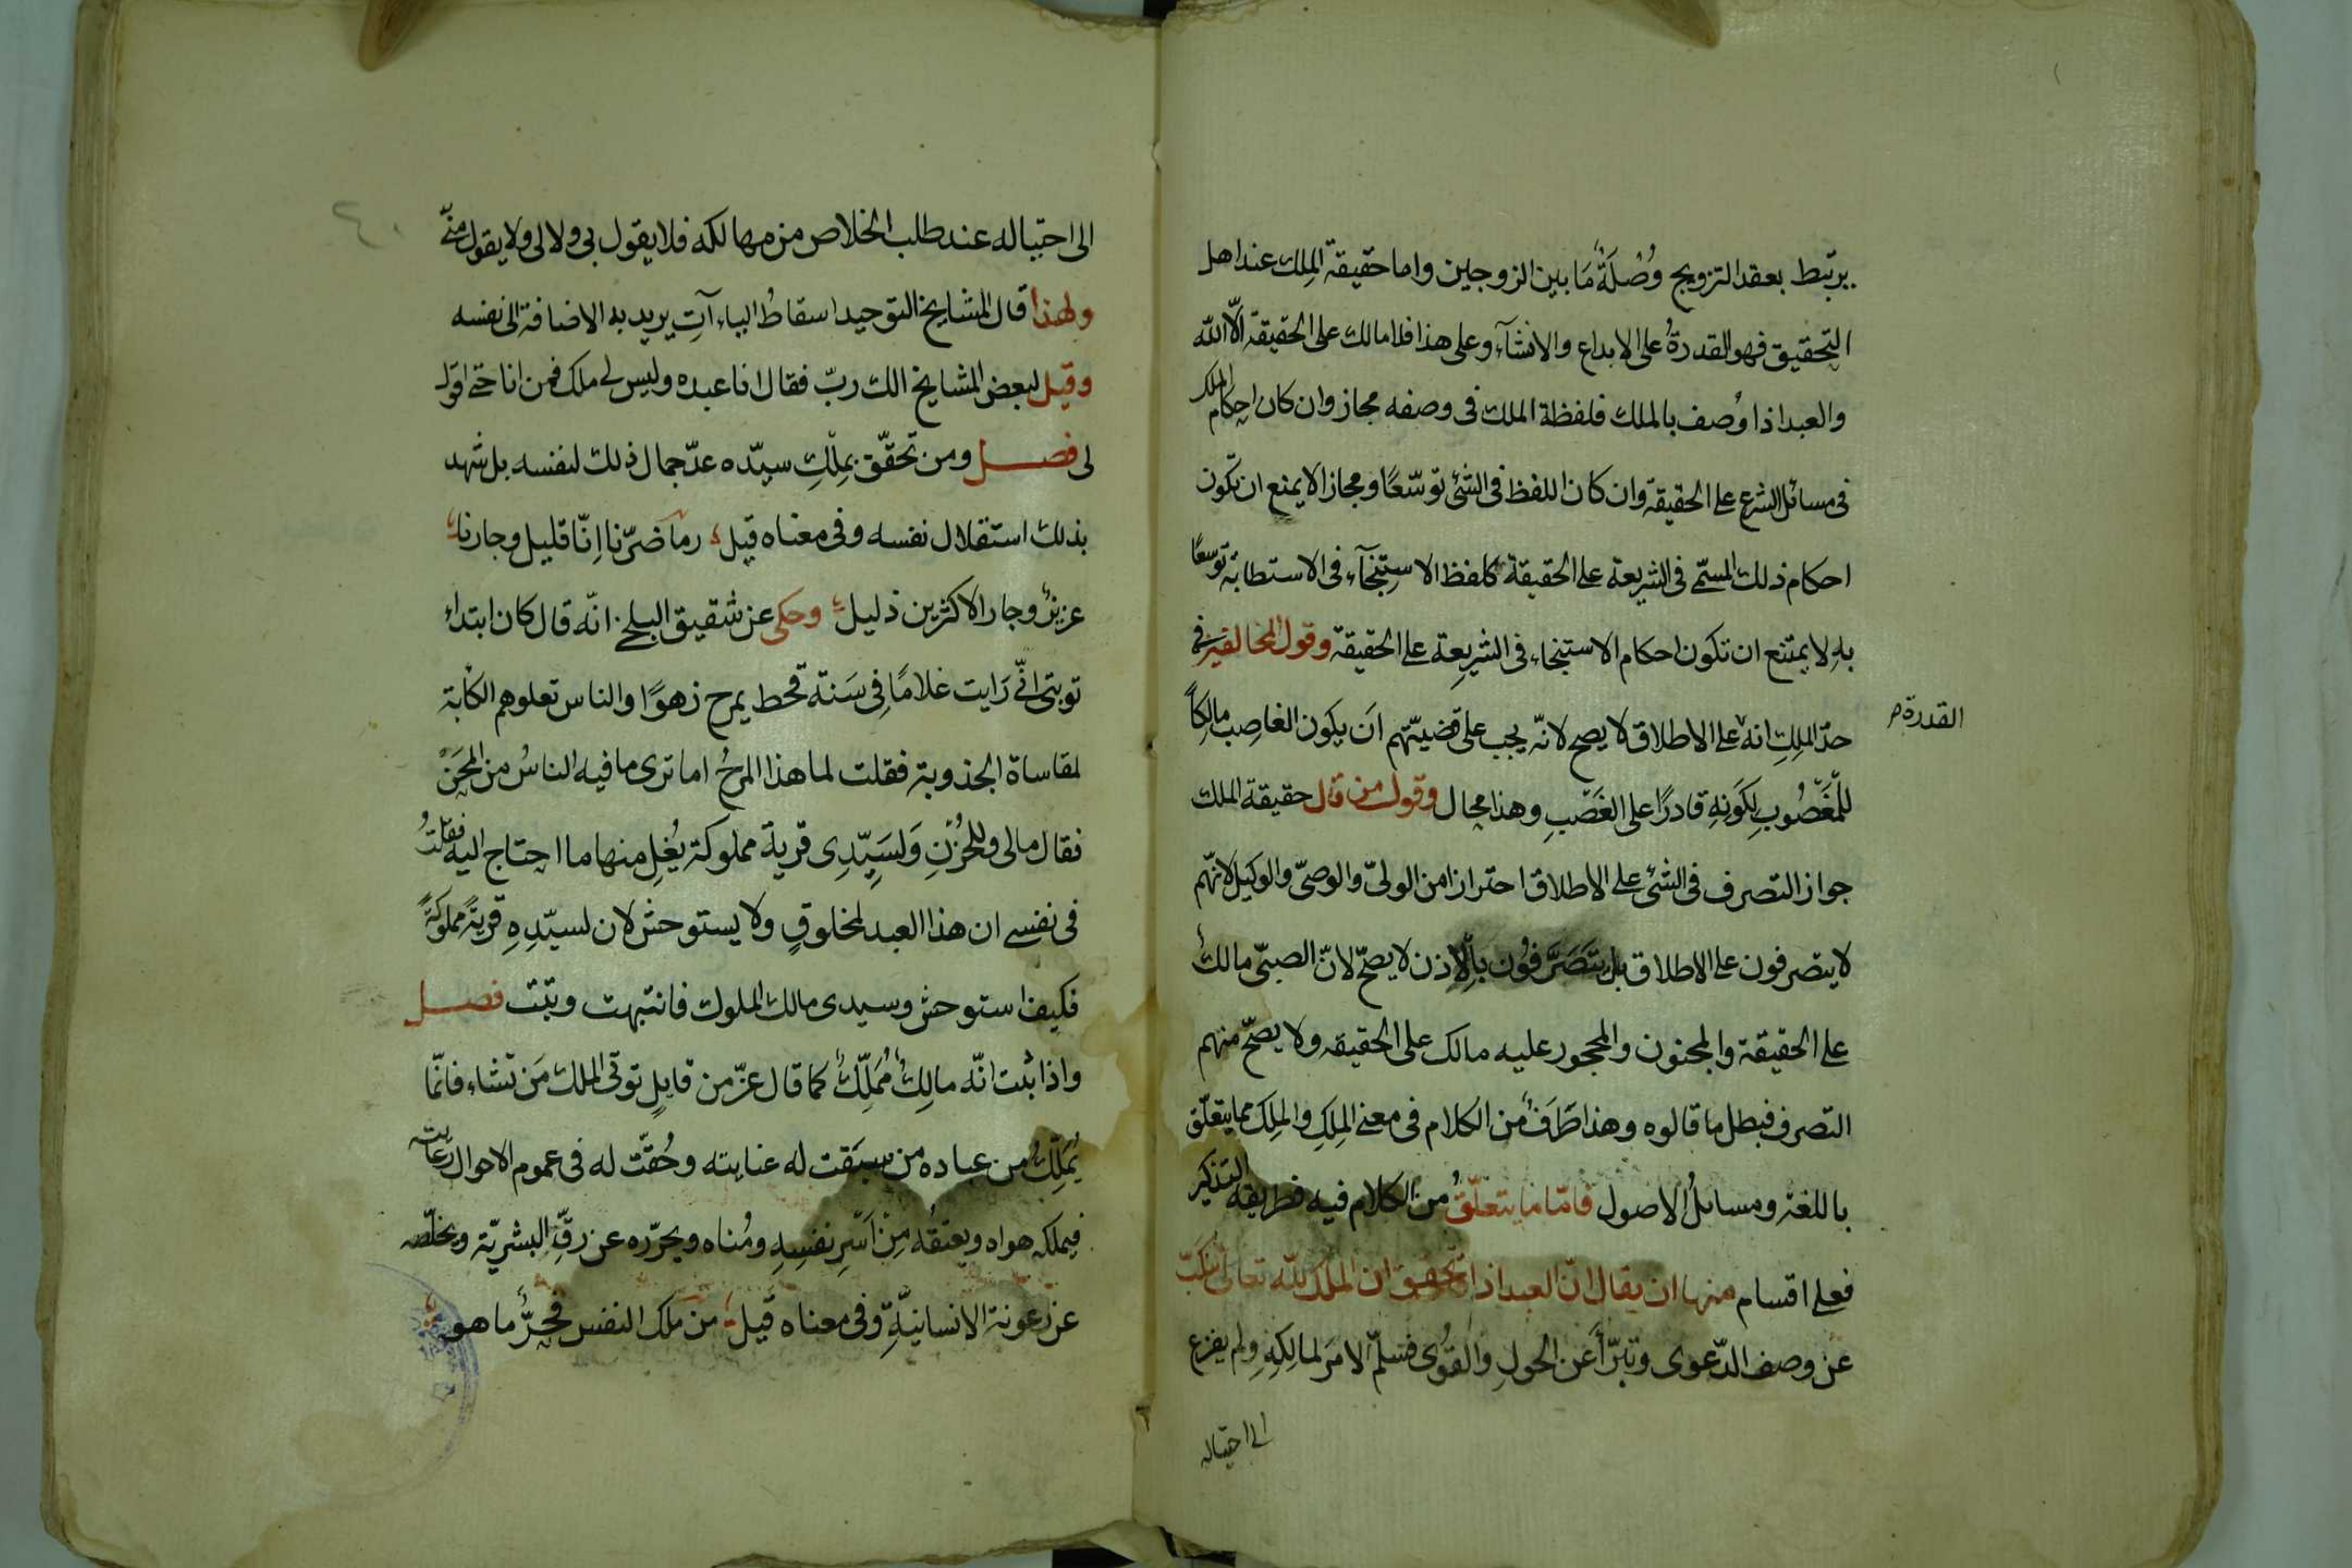 يرتبط بعقد التزويج وُصْلَةٌ مَا بين الزوجين واما حقيقة المِلك عند اهل
التحقيق فهو القدرةُ على الابداع والانشآء وعلى هذا فلا مالك على الحقيقة الّا الله
والعبد اذا وُصف بالملك فلفظة الملك فى وصفه مجاز وان كان احكام الملك
فى مسائل الشرع على الحقيقة وان كان اللفظ فى الشئ توسّعًا ومجازا لا يمنع ان تكون
احكام ذلك المسمّى فى الشريعة على الحقيقة كلفظ الاستِنجآء فى الاستطابة توسعًا
بهِ لا يمتنع ان تكون احكام الاستنجاء فى الشريعة على الحقيقة وقول المخالفين فى
حدّ المِلكِ انه على الاطلاق لا يصح لانّه يجب على قضيتهم اَن يكون الغاصِب مالِكًا
القدرة
للمَغصُوبِ لِكَونِهِ قادرًا على الغَصْبِ وهذا محال وقول من قال حقيقة الملك
جواز التصرف فى الشئ على الاطلاق احترازا من الولىّ والوصىّ والوكيل لانّهم
لا يتصرفون على الاطلاق بل يَتَصَرَّفُون بالاِذن لا يصحّ لانّ الصبىّ مالكٌ
على الحقيقة والمجنون والمحجور عليه مالك على الحقيقه ولا يصحّ منهم
التصرف فبطل ما قالوه وهذا طَرَفٌ من الكلام فى معنى المِلكِ والمِلك مما يتعلّق
باللغة ومسائل الاصول فامّا ما يتعلّقُ من الكلام فيه فطريقه التذكير
فعلى اقسام منها ان يقال انّ العبد اذا تحقق ان الملك لله تعالى تنكّب
عن وصف الدّعوى وتبرّأ عَن الحولِ والقُوى فسلّم الامرَ لمالِكِهِ ولم يفزع
الى احتياله
الى احتياله عند طلب الخلاص من مهالكه فلا يقول بى ولا لى ولا يقول منّى
ولهذا قال المشايخ التوحيد اسقاطُ الياءآتِ يريد به الاضافة الى نفسه
وقيل لبعض المشايخ الك ربّ فقال انا عبده وليس لى ملك فمن انا حتى اقول
لى فصل ومن تحقّق بمِلكِ سيّده عدّ جمال ذلك لنفسه بل شهد
بذلك استقلال نفسه وفى معناه قيل وما ضرّنا اِنّا قليل وجارنا
عزيزٌ وجار الاكثرين ذليل وحكى عن شقيق البلخى انّه قال كان ابتداء
توبتى انّى رَايت غلامًا فِى سَنة قحط يمرح زهوًا والناس تعلوهم الكآبة
لمقاساة الجذوبة فقلت لما هذا المرحُ اما ترى ما فيه الناسُ من المِحَن
فقال مالى وللحُزْنِ وَلسَيِّدِى قرية مملوكة يُغِل منها ما احتاج اليه فقلتُ
فى نفسى ان هذا العبد لمخلوقٍ ولا يستوحش لان لسيّدِهِ قريةً مملوكةً
فكيف استوحش وسيدى مالك الملوك فانتبهت وتبت فصل
واذا ثبت انّه مالِكٌ مُمَلِّكٌ كما قال عزّ من قايلٍ توتى الملك مَن تشاء فانّما
يُمَلِّكُ من عباده من سبَقت له عنايته وحُقّت له فى عموم الاحوال رعايته
فيملكه هواه ويعتقُه مِنْ اَسْرِ نفسِهِ ومُناه ويحرّره عن رقِّ البشريّة ويخلّصه
عن رعونة الانسانيّةِ وفى معناه قيل من ملك النفس فحرٌّ ما هو